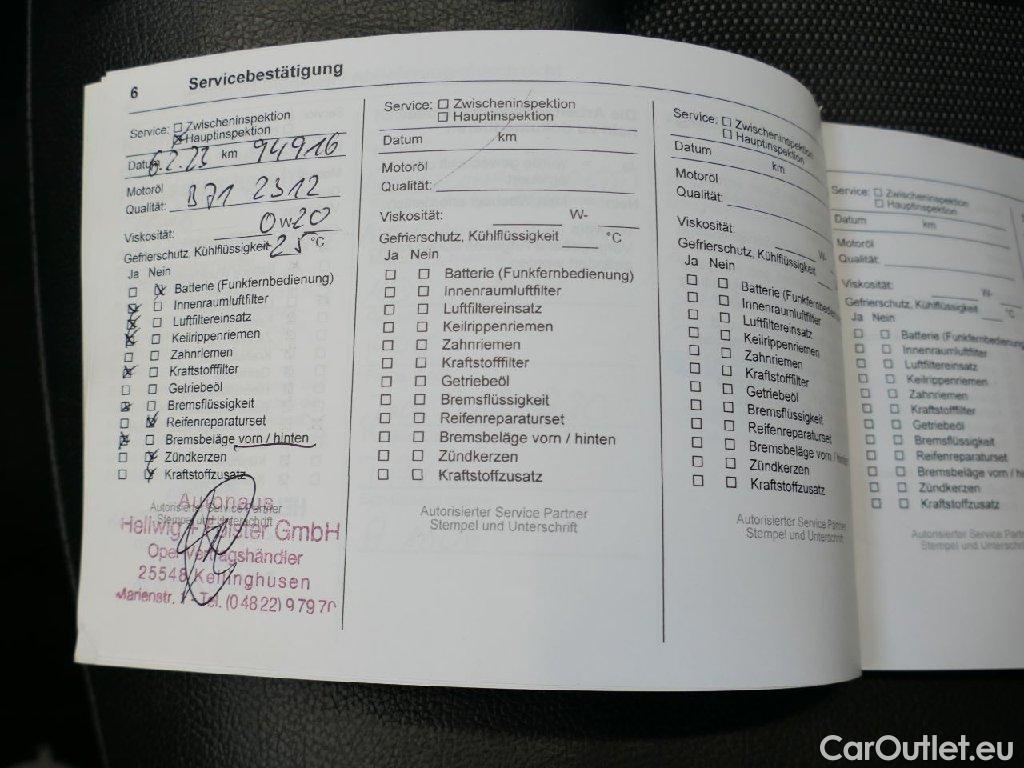 6 Servicebestätigung
Service: Zwischeninspektion
Hauptinspektion
Datum 6.2.23 km 94916
Motoröl
Qualität: B71 2312
Viskosität: 0W20
Gefrierschutz, Kühlflüssigkeit -25 °C
Ja Nein
Batterie (Funkfernbedienung)
Innenraumluftfilter
Luftfiltereinsatz
Keilrippenriemen
Zahnriemen
Kraftstofffilter
Getriebeöl
Bremsflüssigkeit
Reifenreparaturset
Bremsbeläge vorn / hinten
Zündkerzen
Kraftstoffzusatz
Autorisierter Service Partner
Stempel und Unterschrift
Autohaus
Hellwig + GmbH
Opel Vertragshändler
25548 Kellinghusen
Marienstr. Tel. (04822) 97970
Service: Zwischeninspektion
Hauptinspektion
Datum km
Motoröl
Qualität:
Viskosität: W-
Gefrierschutz, Kühlflüssigkeit °C
Ja Nein
Batterie (Funkfernbedienung)
Innenraumluftfilter
Luftfiltereinsatz
Keilrippenriemen
Zahnriemen
Kraftstofffilter
Getriebeöl
Bremsflüssigkeit
Reifenreparaturset
Bremsbeläge vorn / hinten
Zündkerzen
Kraftstoffzusatz
Autorisierter Service Partner
Stempel und Unterschrift
Service: Zwischeninspektion
Hauptinspektion
Datum km
Motoröl
Qualität:
Viskosität: W-
Gefrierschutz, Kühlflüssigkeit
Ja Nein
Batterie (Funkfernbe
Innenraumluftfilter
Luftfiltereinsatz
Keilrippenriemen
Zahnriemen
Kraftstofffilter
Getriebeöl
Bremsflüssigkeit
Reifenreparaturset
Bremsbeläge vorn / hinten
Zündkerzen
Kraftstoffzusatz
Autorisierter Service Partner
Stempel und Unterschrift
Service: Zwischeninspektion
Hauptinspektion
Datum km
Motoröl
Qualität:
Viskosität: W-
Gefrierschutz, Kühlflüssigkeit °C
Ja Nein
Batterie (Funkfernbedienung
Innenraumluftfilter
Luftfiltereinsatz
Keilrippenriemen
Zahnriemen
Kraftstofffilter
Getriebeöl
Bremsflüssigkeit
Reifenreparaturset
Bremsbeläge vorn / hi
Zündkerzen
Kraftstoffzusatz
Autorisierter Service Par
Stempel und Unterschri
CarOutlet.eu